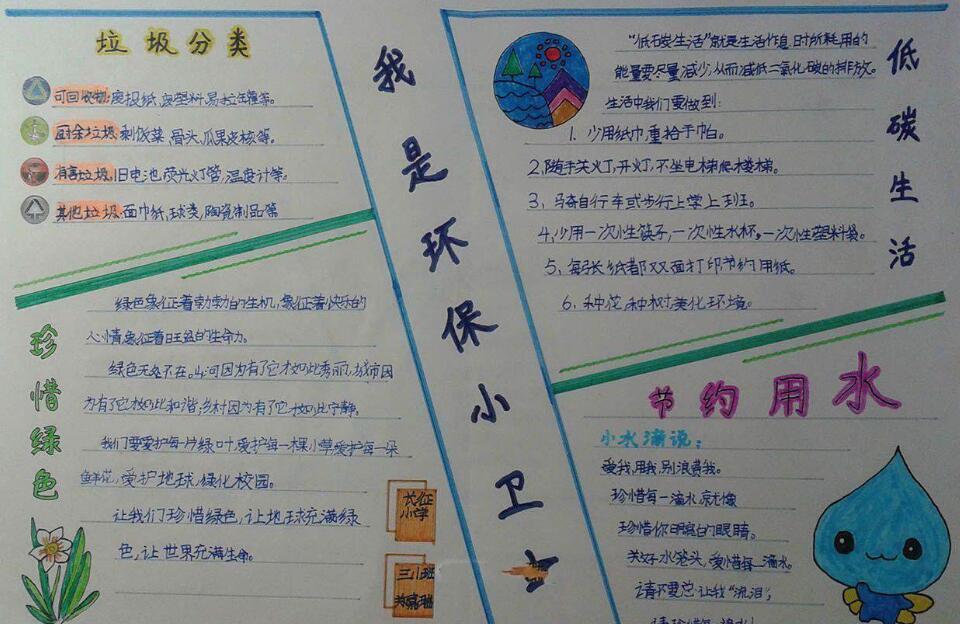 垃圾分类
可回收物:废报纸,废塑料,易拉罐等。
厨余垃圾,剩饭菜,骨头,瓜果皮核等。
有害垃圾,旧电池,荧光灯管,温度计等。
其他垃圾,面巾纸,球类,陶瓷制品等
珍惜绿色
绿色象征着勃勃的生机,象征着快乐的
心情,象征着旺盛的生命力。
绿色无处不在。山河因为有了它才如此秀丽,城市因
为有了它才如此和谐,乡村因为有了它才如此宁静。
我们要爱护每一片绿叶,爱护每一棵小草,爱护每一朵
鲜花,爱护地球,绿化校园。
让我们珍惜绿色,让地球充满绿
色,让世界充满生命。
长征
小学
三小班
我是环保小卫士
低碳生活
"低碳生活"就是生活作息时所耗用的
能量要尽量减少,从而减低二氧化碳的排放。
生活中我们要做到:
1、少用纸巾,重拾手帕。
2,随手关灯,开灯,不坐电梯爬楼梯。
3、骑自行车或步行上学上班。
4,少用一次性筷子,一次性水杯,一次性塑料袋。
5、每张纸都双面打印节约用纸。
6、种花种树美化环境。
节约用水
小水滴说:
爱我,用我,别浪费我。
珍惜每一滴水就像
珍惜你明亮的眼睛。
关好水龙头,爱惜每一滴水。
请不要总让我"流泪",
请珍惜每一滴水!